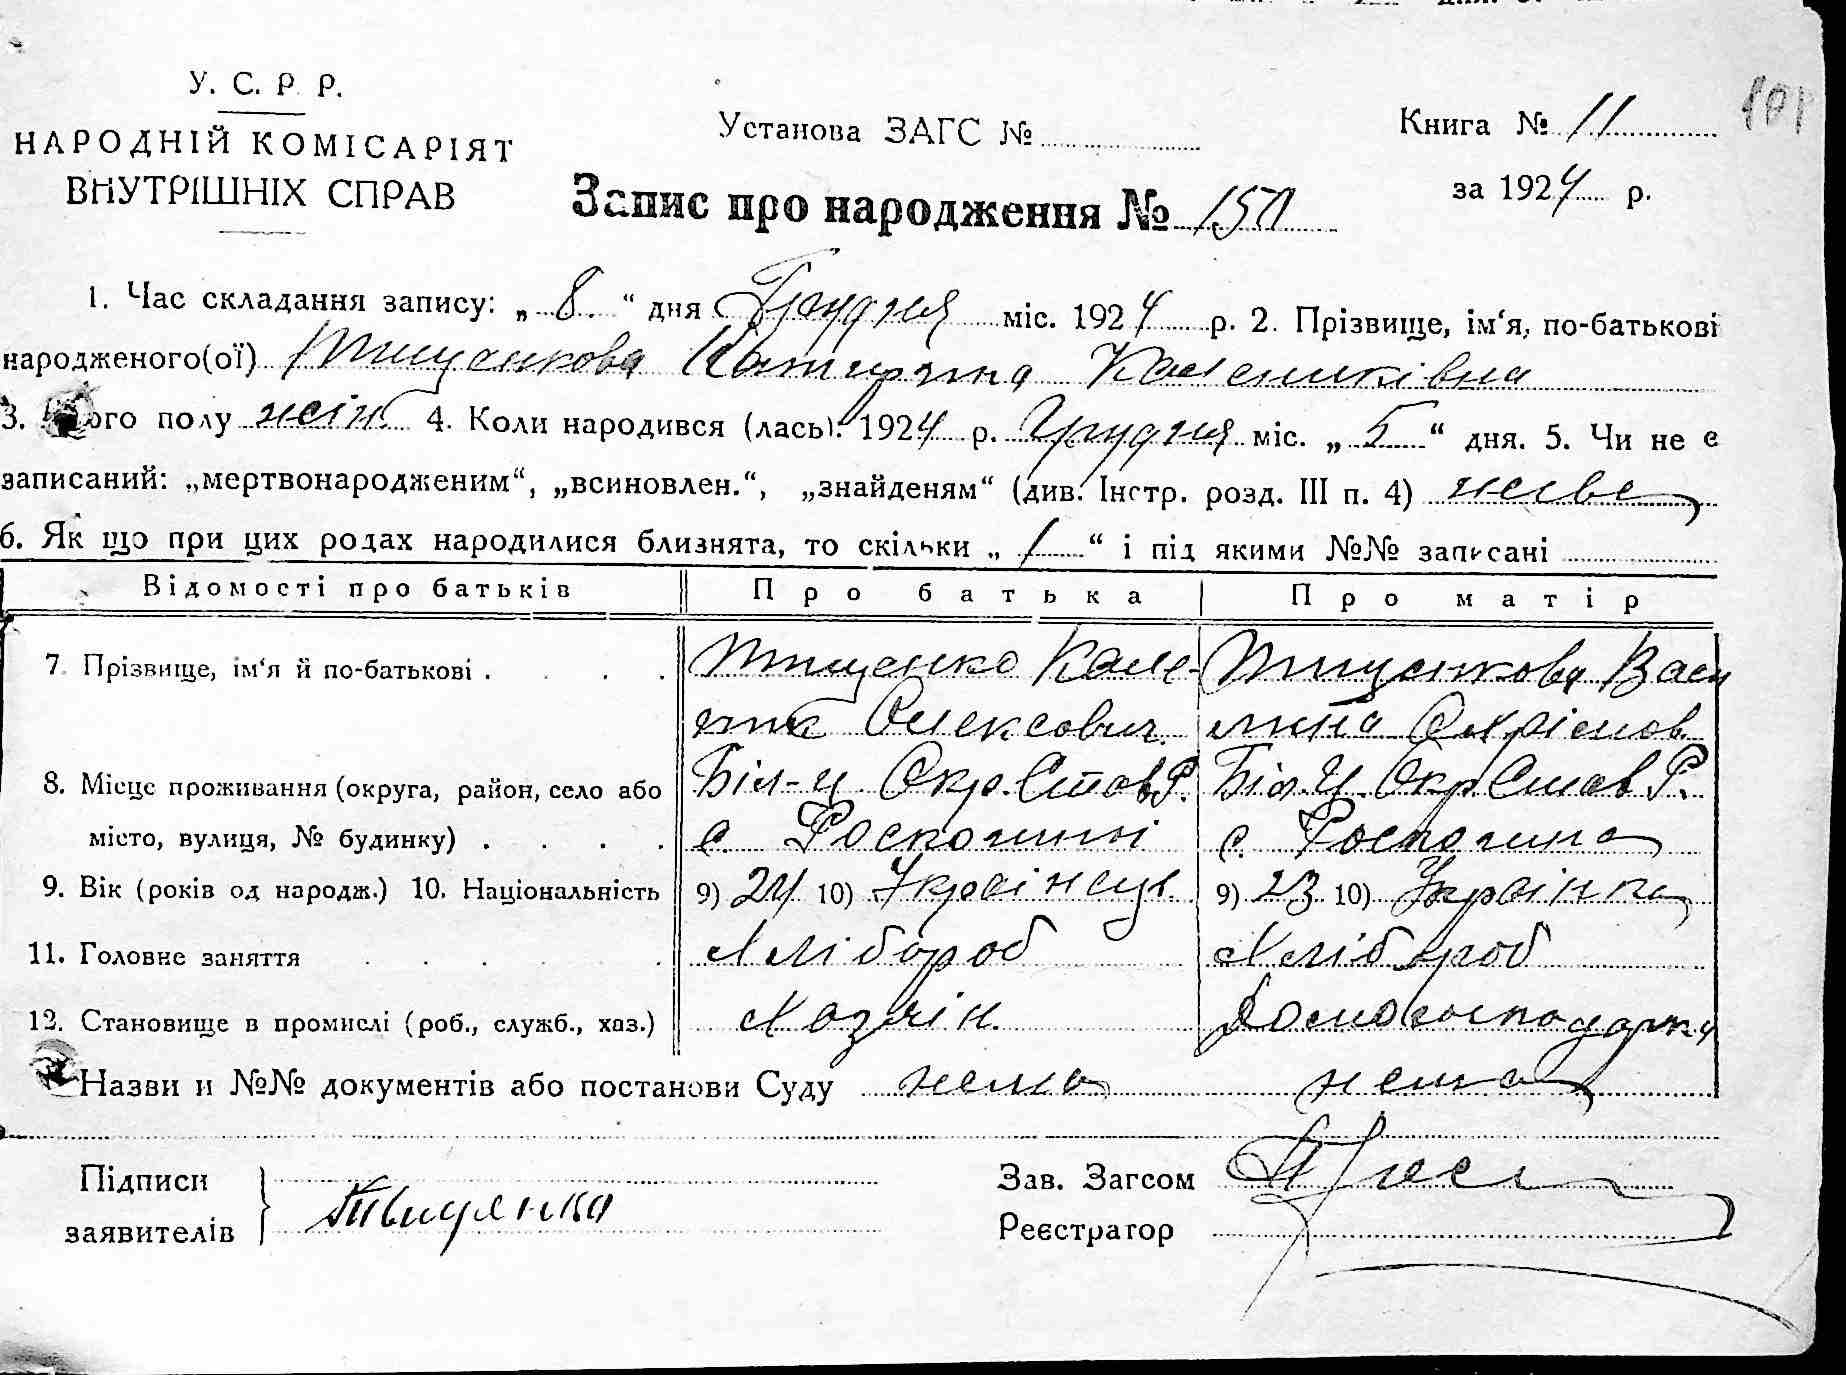 У. С. Р. Р.
НАРОДНІЙ КОМІСАРІЯТ
ВНУТРІШНІХ СПРАВ
Установа ЗАГС №
Книга № 11
101
за 1924 р.
Запис про народження № 150
1. Час складання запису: „ 8 “ дня Грудня міс. 1924 р. 2. Прізвище, ім‘я, по-батькові
народженого(ої) Тищенкова Катирина Калениківна
3. ого полу жін. 4. Коли народився (лась): 1924 р. Грудня міс. „ 5 “ дня. 5. Чи не є
записаний: „мертвонародженим“, „всиновлен.“, „знайденям“ (див. Інстр. розд. III п. 4)
6. Як що при цих родах народилися близнята, то скільки „ 1 “ і під якими №№ записані
Відомості про батьків Про батька Про матір
7. Прізвище, ім‘я й по-батькові . . . . Тищенко Кале- Тищенкова Васи
ник Олексович Охрімов.
8. Місце проживання (округа, район, село або Біл-Ц. Окр. Став Р. Біл. Ц. Окр Став Р.
місто, вулиця, № будинку) . . . . с. с.
9. Вік (років од народж.) 10. Національність 9) 24 10) Українець 9) 23 10) Українка
11. Головне заняття . . . . . . Хлібороб Хлібороб
12. Становище в промислі (роб., служб., хаз.) Хазяїн. Домогосподарка
Назви и №№ документів або постанови Суду нема нема
Підписи
заявителів Тищенко
Зав. Загсом
Реєстратор